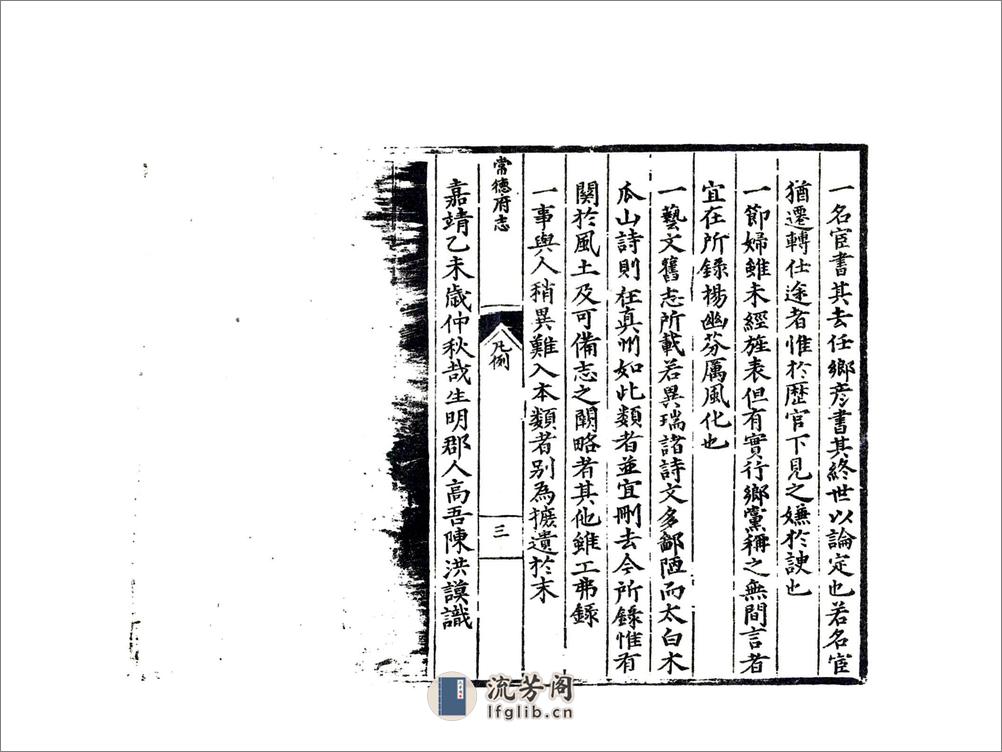 一名宦書其去任鄉彦書其終世以論定也若名宦
猶遷轉仕途者惟於歷官下見之嫌於諛也
一節婦雖未經旌表但有實行鄉黨稱之無間言者
宜在所錄揚幽芬厲風化也
一藝文舊志所載若異瑞諸詩文多鄙陋而太白木
瓜山詩則在真州如此類者並宜刪去今所錄惟有
關於風土及可備志之闕略者其他雖工弗錄
一事與人稍異難入本類者别為摭遺於末
常德府志
凡例
三
嘉靖乙未歲仲秋哉生明郡人高吾陳洪謨識
流芳阁
lfglib.cn